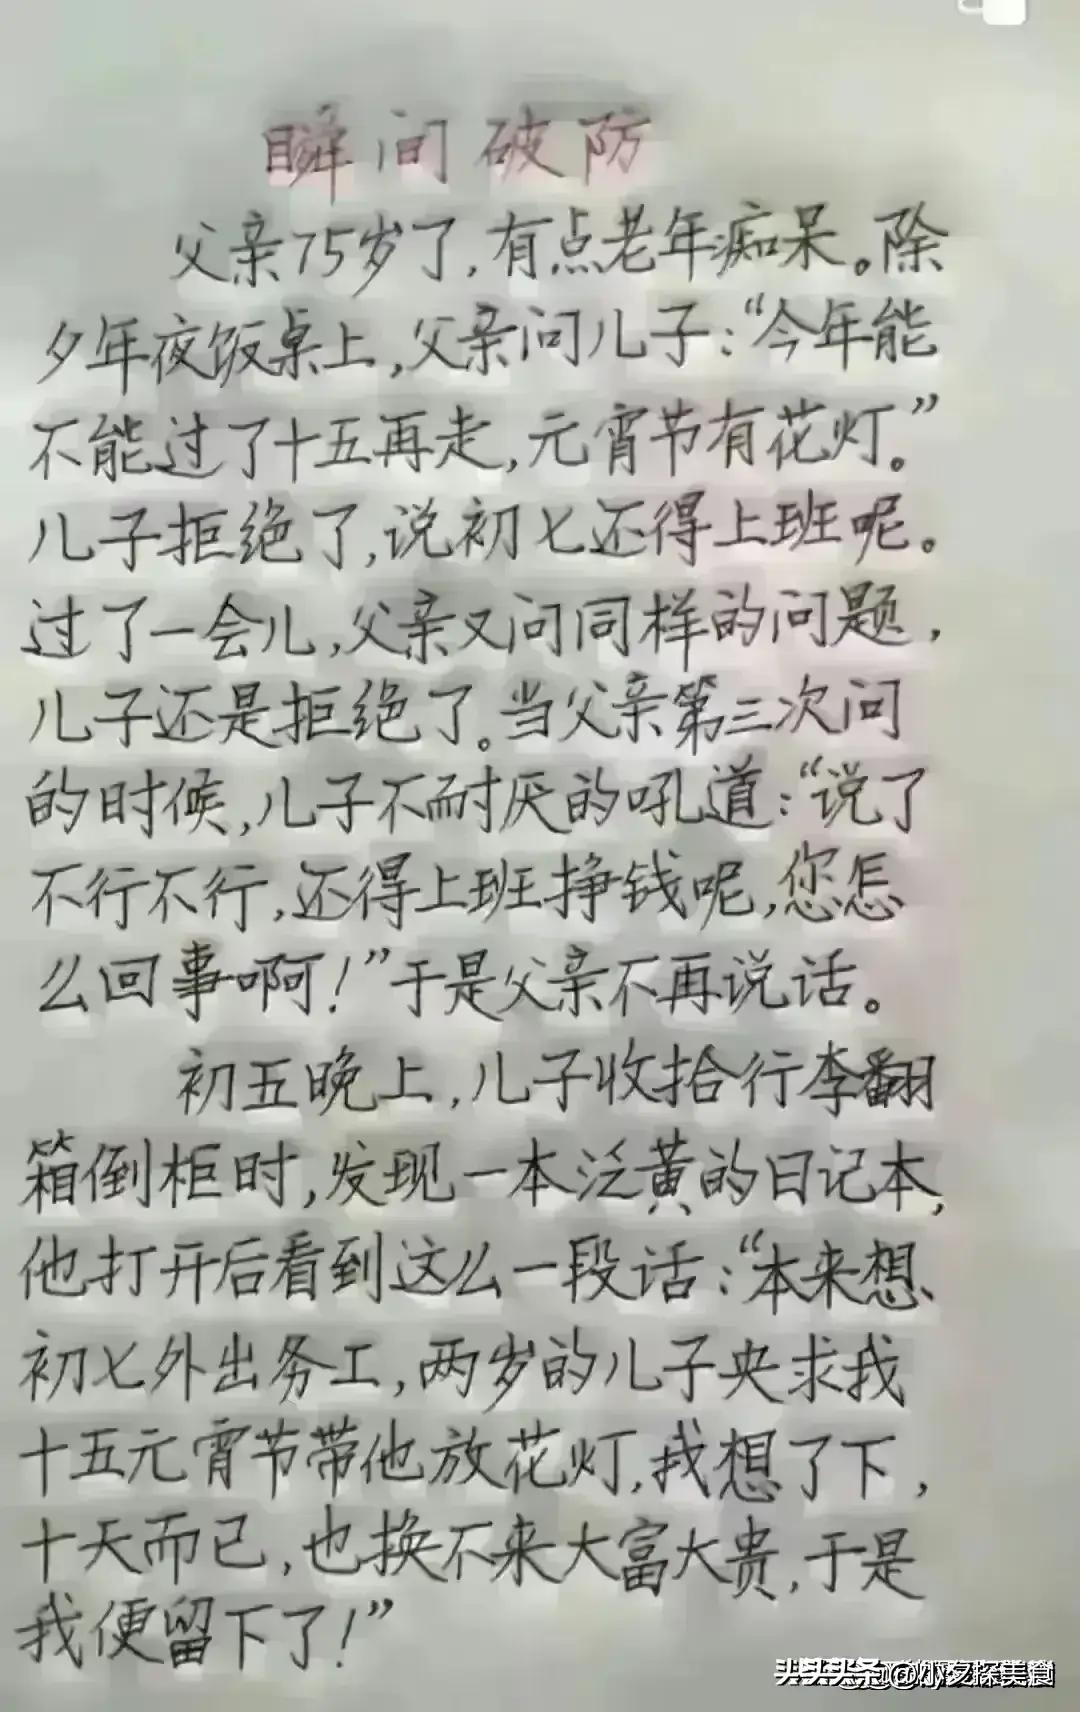 瞬间破防
父亲75岁了,有点老年痴呆。除
夕年夜饭桌上,父亲问儿子:“今年能
不能过了十五再走,元宵节有花灯。”
儿子拒绝了,说初七还得上班呢。
过了一会儿,父亲又问同样的问题,
儿子还是拒绝了。当父亲第三次问
的时候,儿子不耐厌的吼道:“说了
不行不行,还得上班挣钱呢,您怎
么回事啊!”于是父亲不再说话。
初五晚上,儿子收拾行李翻
箱倒柜时,发现一本泛黄的日记本,
他打开后看到这么一段话:“本来想
初七外出务工,两岁的儿子央求我
十五元宵节带他放花灯,我想了下,
十天而已,也换不来大富大贵,于是
我便留下了!”
头条 @小夕探美食